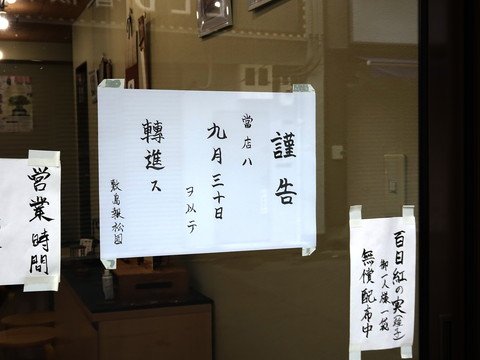 謹告
當店ハ
九月三十日
ヲ以テ
轉進ス
敷島報松園
百日紅の実(種子)
御一人様一箱
無償配布中
営業時間